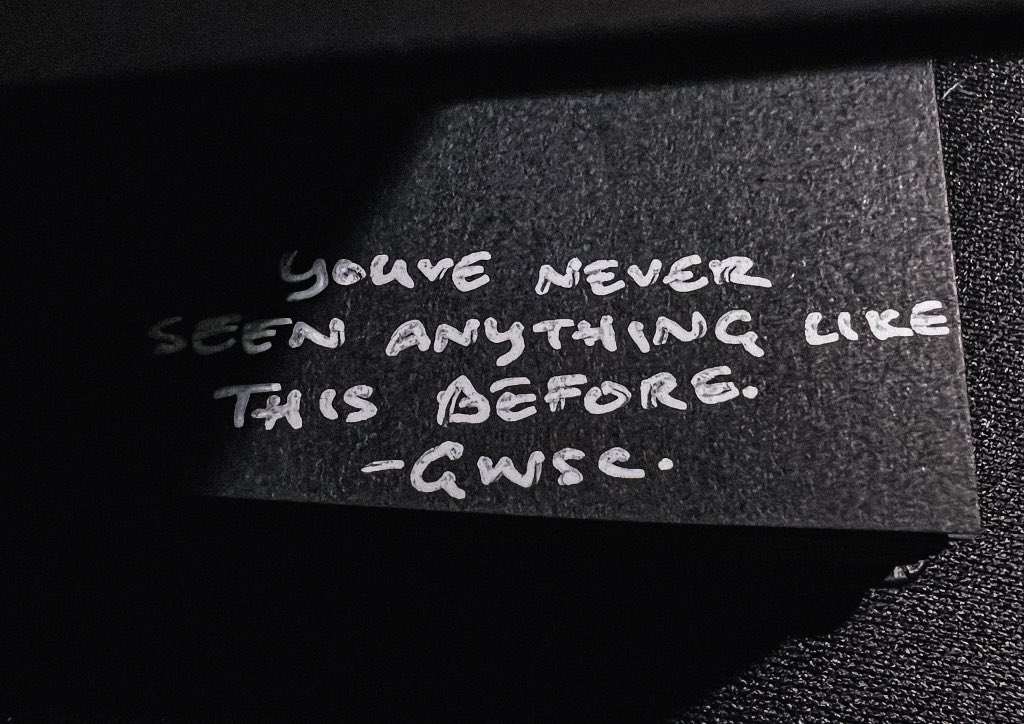 YOUVE NEVER
SEEN ANYTHING LIKE
THIS BEFORE.
-GWSC.